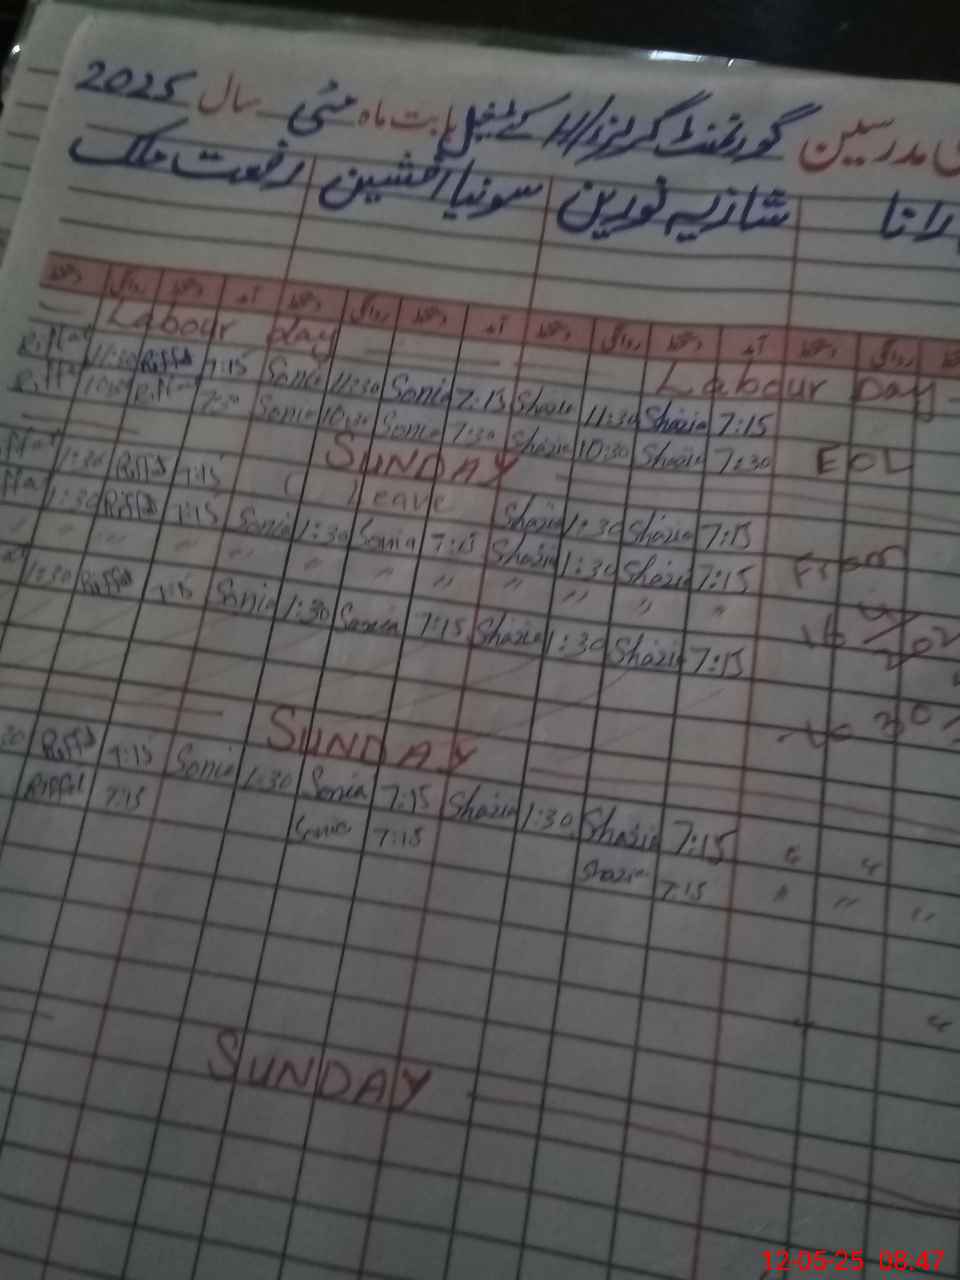 مدرسین گورنمنٹ گرلز بابت ماہ مئی سال 2025
رانا شازیہ نورین سونیا افشین رفعت ملک
دستخط روانگی دستخط آمد دستخط روانگی دستخط آمد دستخط روانگی دستخط آمد دستخط روانگی
Labour day Labour Day
Riffat 11:30 Riffat 7:15 Sonia 11:30 Sonia 7:15 Shazia 11:30 Shazia 7:15
Riffat 10:30 Riffat 7:30 Sonia 10:30 Sonia 7:30 Shazia 10:30 Shazia 7:30 EOL
SUNDAY
1:30 Riffat 7:15 Leave Shazia 1:30 Shazia 7:15
1:30 Riffat 7:15 Sonia 1:30 Sonia 7:15 Shazia 1:30 Shazia 7:15 From
" " " " " " " " " "
1:30 Riffat 7:15 Sonia 1:30 Sonia 7:15 Shazia 1:30 Shazia 7:15 16/02
To 30
SUNDAY
30 Riffat 7:15 Sonia 1:30 Sonia 7:15 Shazia 1:30 Shazia 7:15 " "
Riffat 7:15 Sonia 7:15 Shazia 7:15 " " "
SUNDAY
12-05-25 08:47